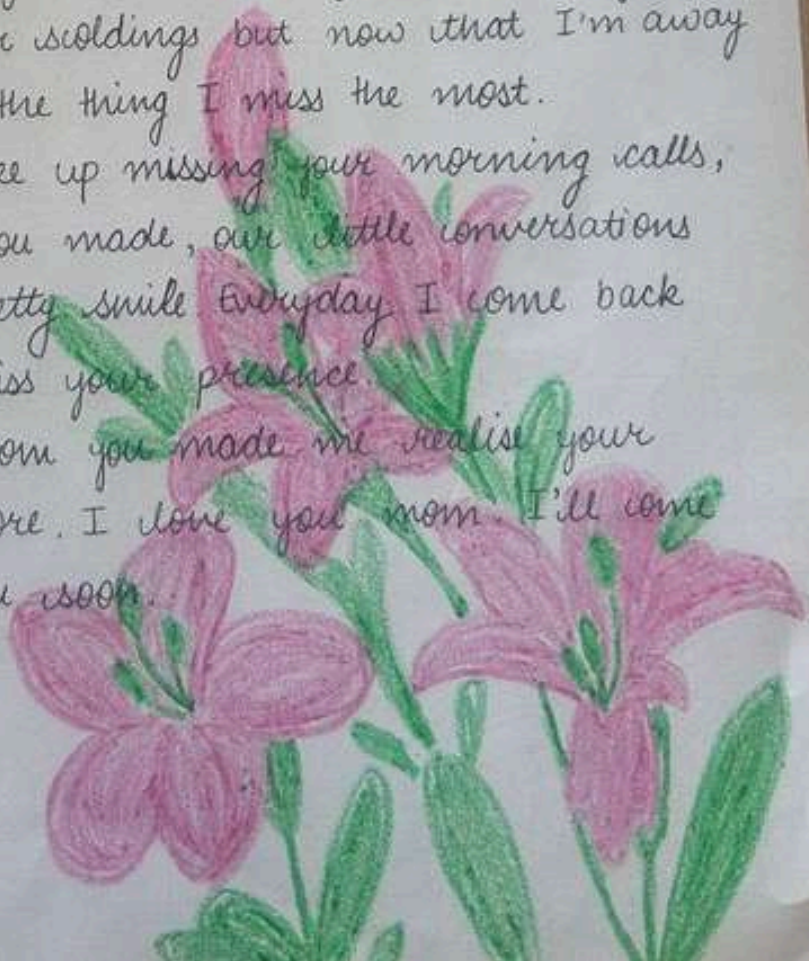 scoldings but now that I'm away
the thing I miss the most.
up missing your morning calls,
you made, our little conversations
smile Everyday I come back
your presence.
you made me realise your
I love you mom. I'll come
soon.